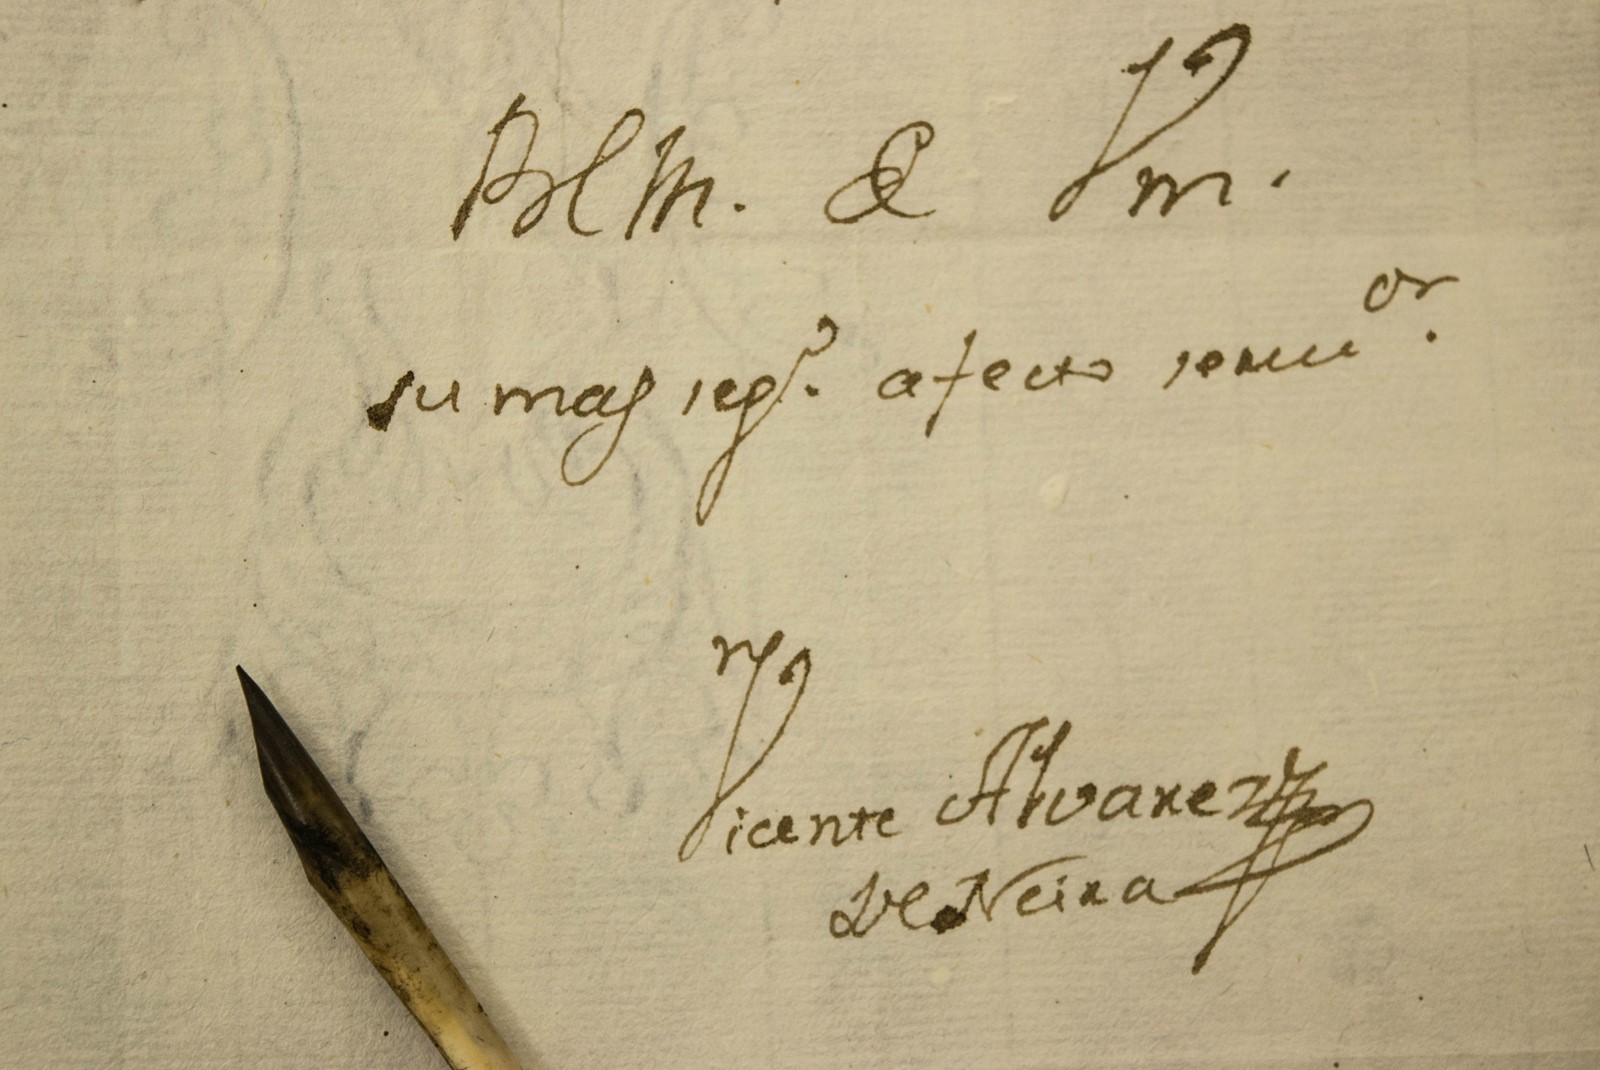 BLM. de Vm.
su mas segº. afecto servidor.
Vicente Alvarez
De Neira